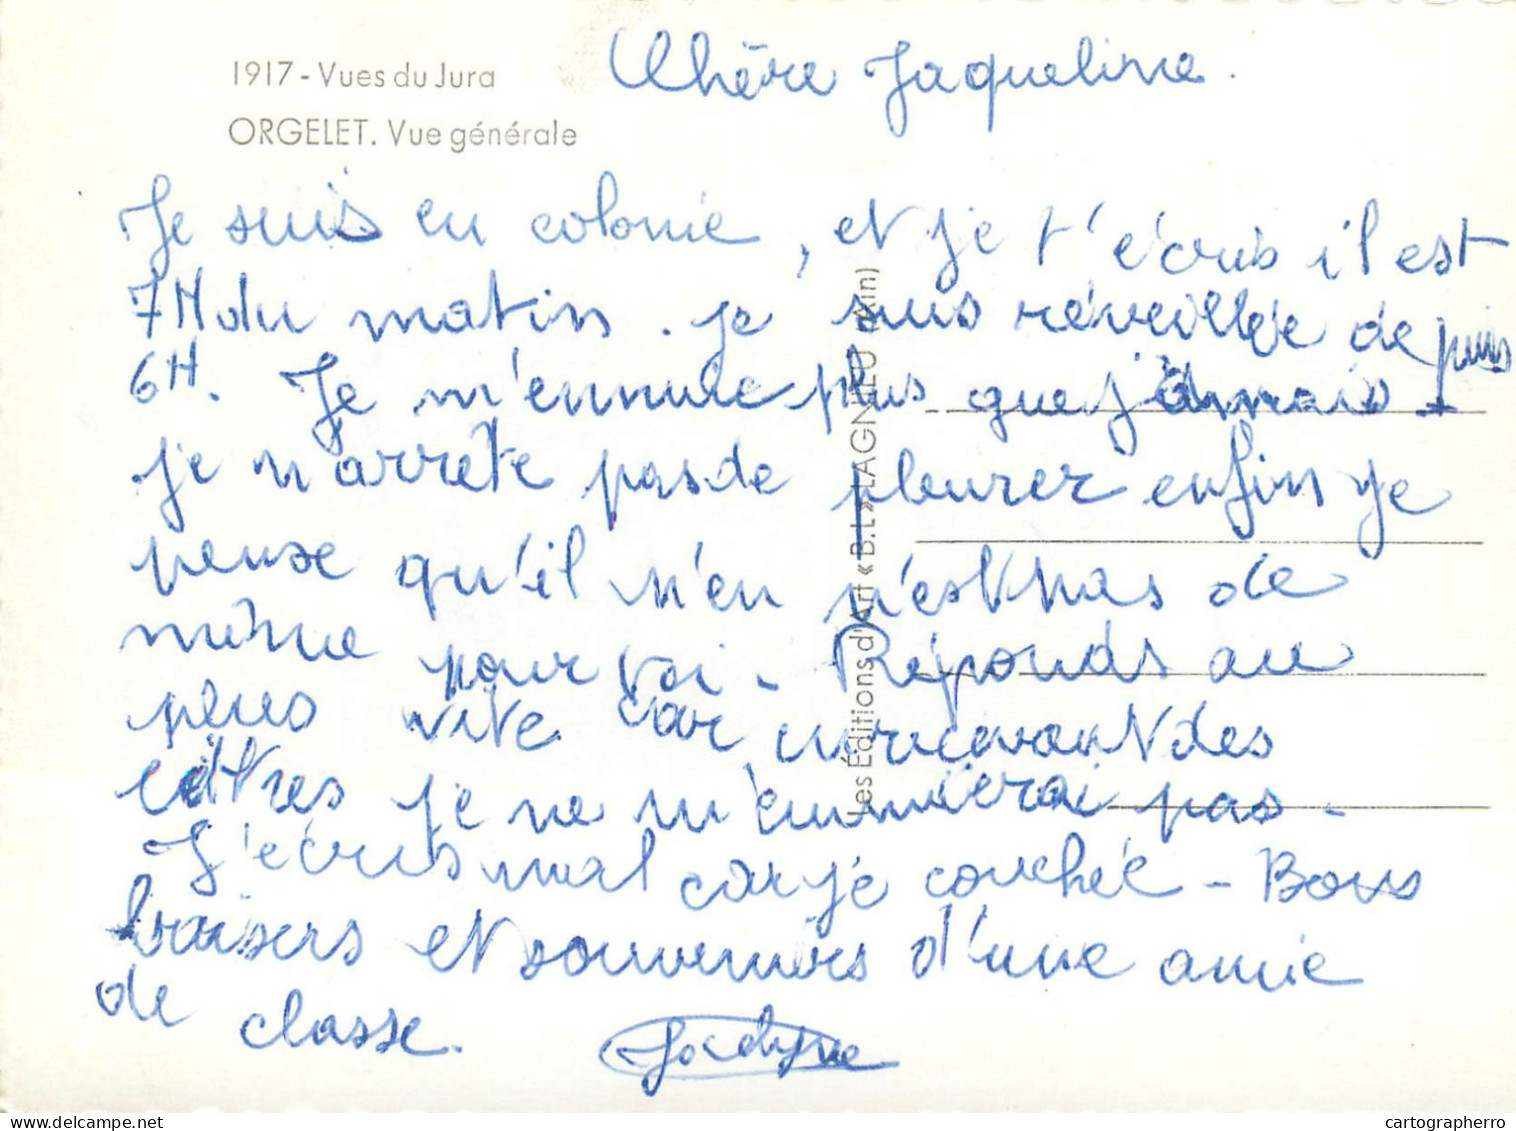 1917 - Vues du Jura
ORGELET. Vue générale
Chère Jaqueline.
Je suis en colonie, et je t'écris il est
7H du matin. je suis réveillée depuis
6H. Je m'ennuie plus que jamais
je n'arrête pas de pleurer enfin je
pense qu'il n'en n'est pas de
même pour toi - Réponds au
plus vite car en recevant des
lettres je ne m'ennuierai pas.
J'écris mal car je couchée - Bons
baisers et souvenirs d'une amie
de classe.
Jocelyne
Les Éditions d'Art « B.L » LAGNIEU (Ain)
cartographerro